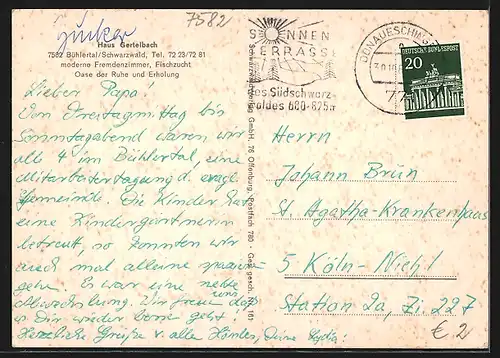 Junker
7582
Haus Gertelbach
7582 Bühlertal/Schwarzwald, Tel. 72 23/72 81
moderne Fremdenzimmer, Fischzucht
Oase der Ruhe und Erholung
Lieber Papa!
Von Freitagmittag bis
Sonntagabend waren wir
alle 4 im Bühlertal, eine
Mitarbeitertagung d. evgl.
Gemeinde. Die Kinder hat
eine Kindergärtnerin
betreut, so konnten wir
auch mal alleine spazieren
gehn. Es war eine nette
Abwechslung. Wir freuen
uns, daß
Dir wieder besser geht!
Herzliche Grüße v. allen Deine Lydia
Schwarzwald GmbH, 76 Offenburg, Postfach 780 - Ges. gesch. 161
SONNEN
TERRASSE
des Südschwarz-
waldes 680-825m
DONAUESCHINGEN
77
DEUTSCHE BUNDESPOST
20
Herrn
Johann Brün
St. Agatha-Krankenhaus
5 Köln-Niehl
Station 2a, Zi. 227
€ 2